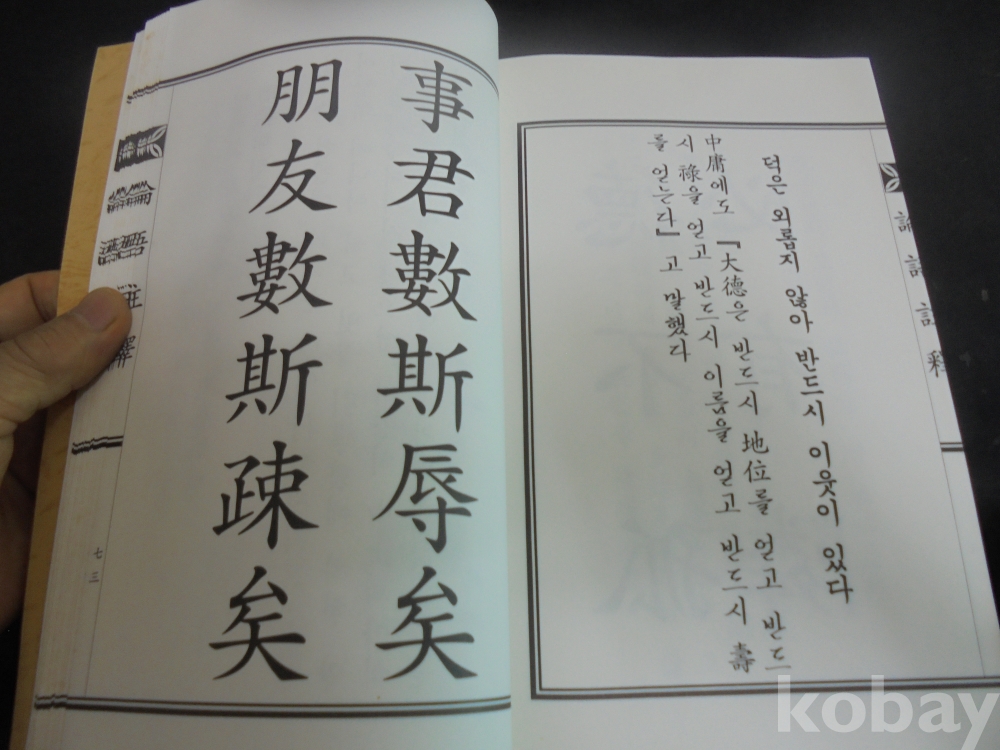 덕은 외롭지 않아 반드시 이웃이 있다
中庸에도 『大德은 반드시 地位를 얻고 반드
시 祿을 얻고 반드시 이름을 얻고 반드시 壽
를 얻는다』고 말했다
事君數斯辱矣
朋友數斯疎矣
論語註釋
七三
kobay